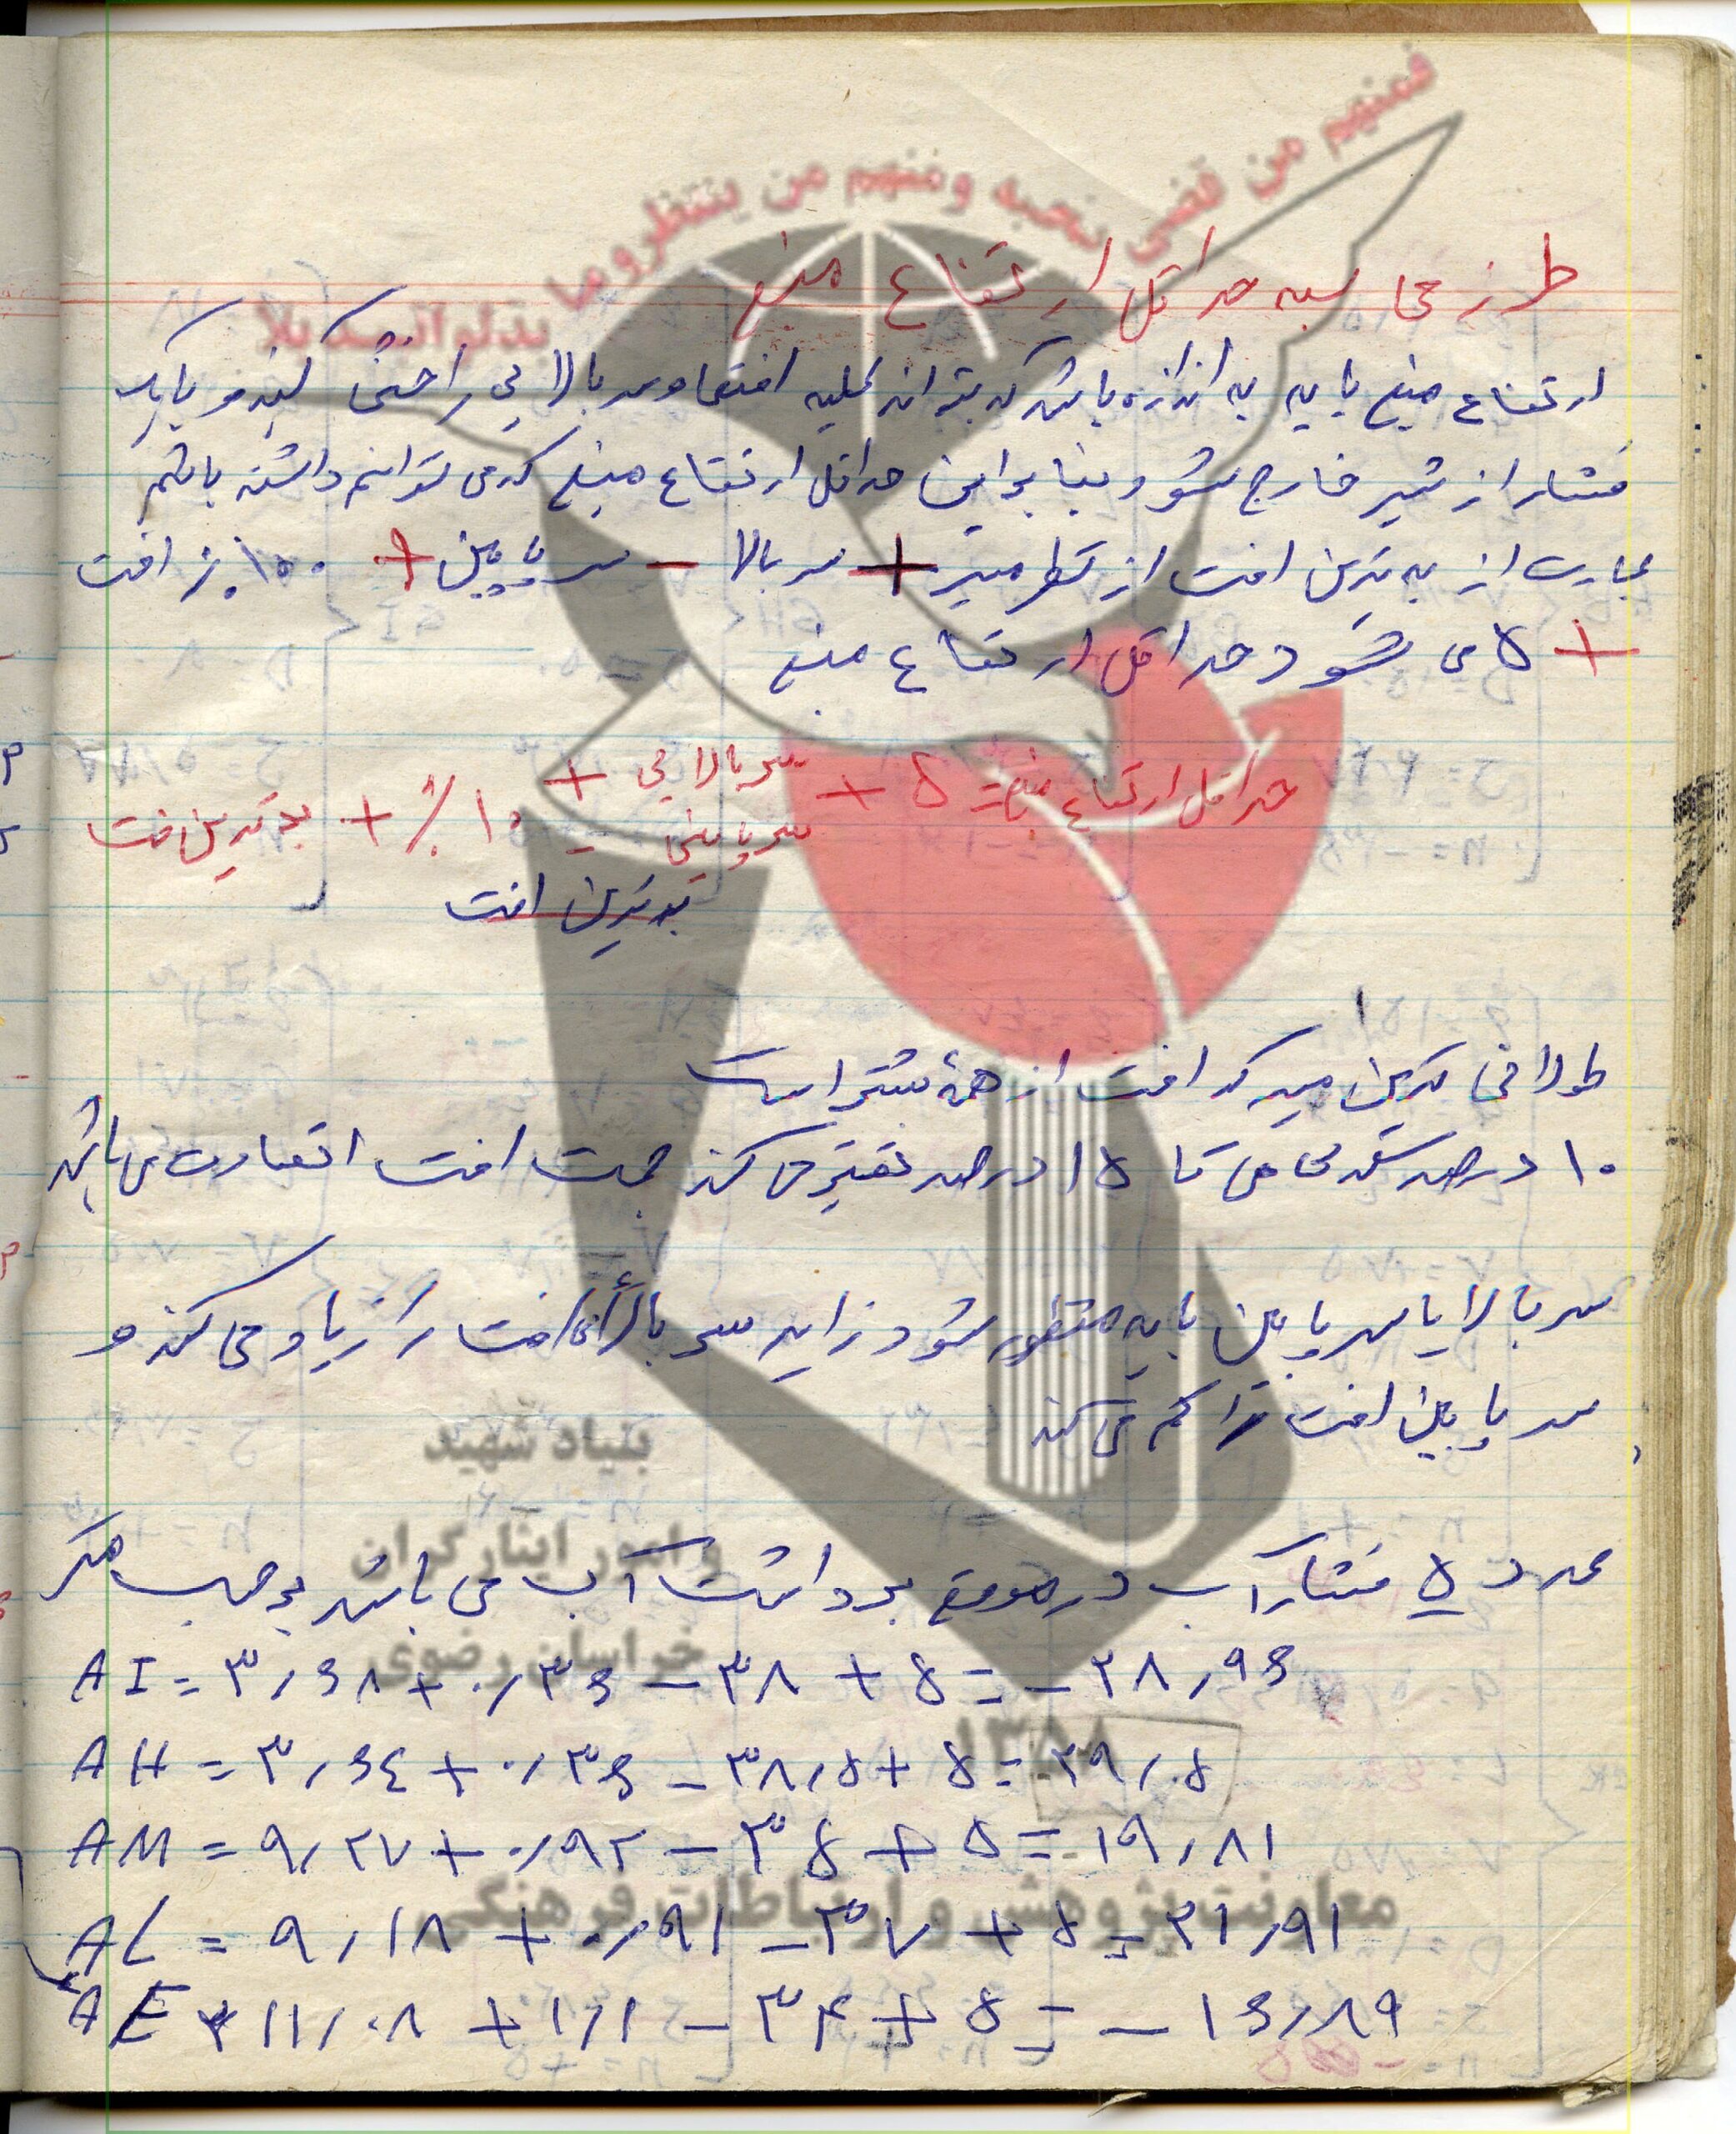 فمنهم من قضی نحبه و منهم من ینتظر و ما بدلوا تبدیلا
طرز محاسبه حداقل ارتفاع منبع
ارتفاع منبع باید به اندازه باشد که بتواند کلیه افتها و سر بالایی را خنثی کند و با یک
فشار از شیر خارج شود بنابراین حداقل ارتفاع منبع که می توانیم داشته باشیم
عبارت از بدترین افت از نظر مسیر + سر بالا - سر پایین + ۱۰٪ افت
+ ۵ می شود حداقل ارتفاع منبع
حداقل ارتفاع منبع = ۵ + سر بالایی + ۱۰٪ + بدترین افت
سرپایینی -
بدترین افت
طولانی ترین مسیر که افت از همه بیشتر است
۱۰ درصد تا ۱۵ درصد تغییر می کند جهت افت اتصالات می باشد
سر بالا یا سر پایین باید منظور شود زیرا سر بالا افت را زیاد می کند و
سر پایین افت را کم می کند
بنیاد شهید
و امور ایثارگران
عدد ۵ فشار آب در موقع برداشت آب می باشد بر حسب متر
خراسان رضوی
AI = ۳٫۶۸ + ۰٫۳۶ - ۳۸ + ۵ = - ۲۸٫۹۶
AH = ۳٫۶٤ + ۰٫۳۶ - ۳۸٫۵ + ۵ = ۲۹٫۰۵
AM = ۹٫۲۷ + ۰٫۹۲ - ۳۵ + ۵ = ۱۹٫۸۱
معاونت پژوهش و ارتباطات فرهنگی
AL = ۹٫۱۸ + ۰٫۹۱ - ۳۷ + ۵ = ۲۱٫۹۱
AE = ۱۱٫۰۸ + ۱٫۱ - ۳۴ + ۵ = - ۱۶٫۸۹